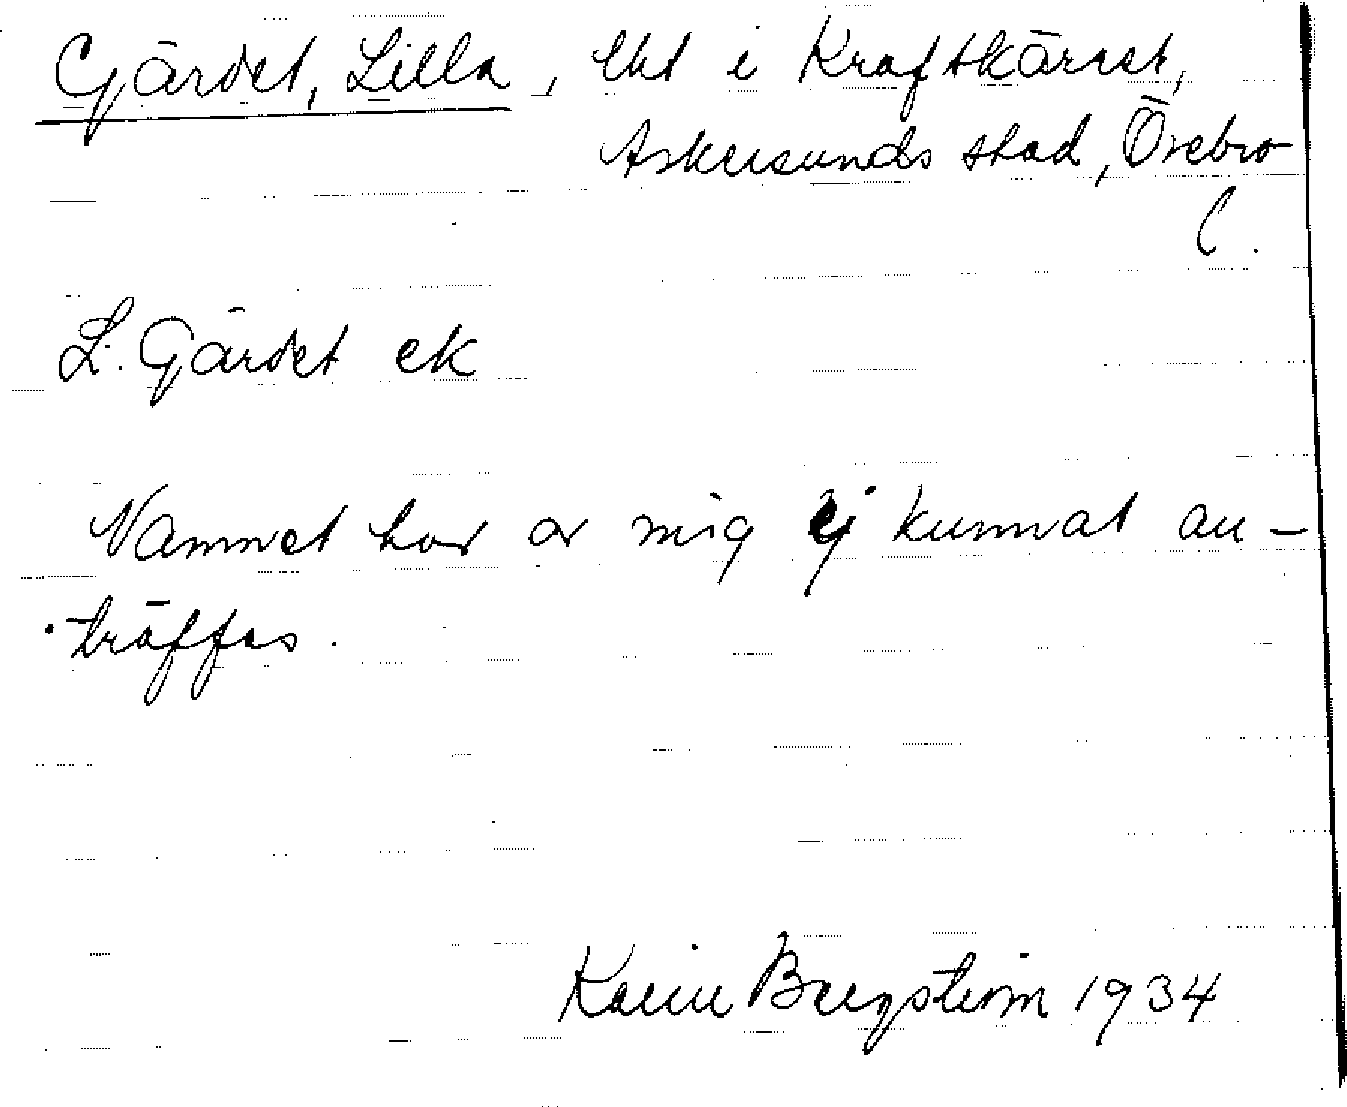 Gärdet, Lilla, lht i Kraftkärret,
Askersunds stad, Örebro
l.
L. Gärdet ek
Namnet har av mig ej kunnat an-
träffas.
Karin Bergström 1934